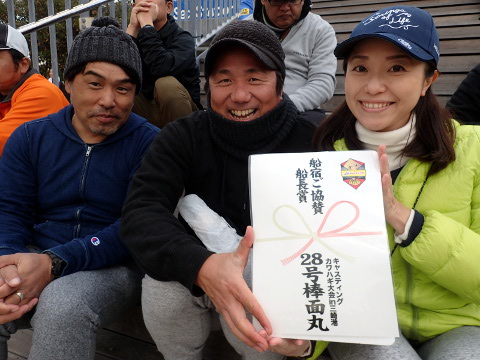 船宿ご協賛
船長賞
キャスティング
カワハギ大会in三崎港
28号棒面丸